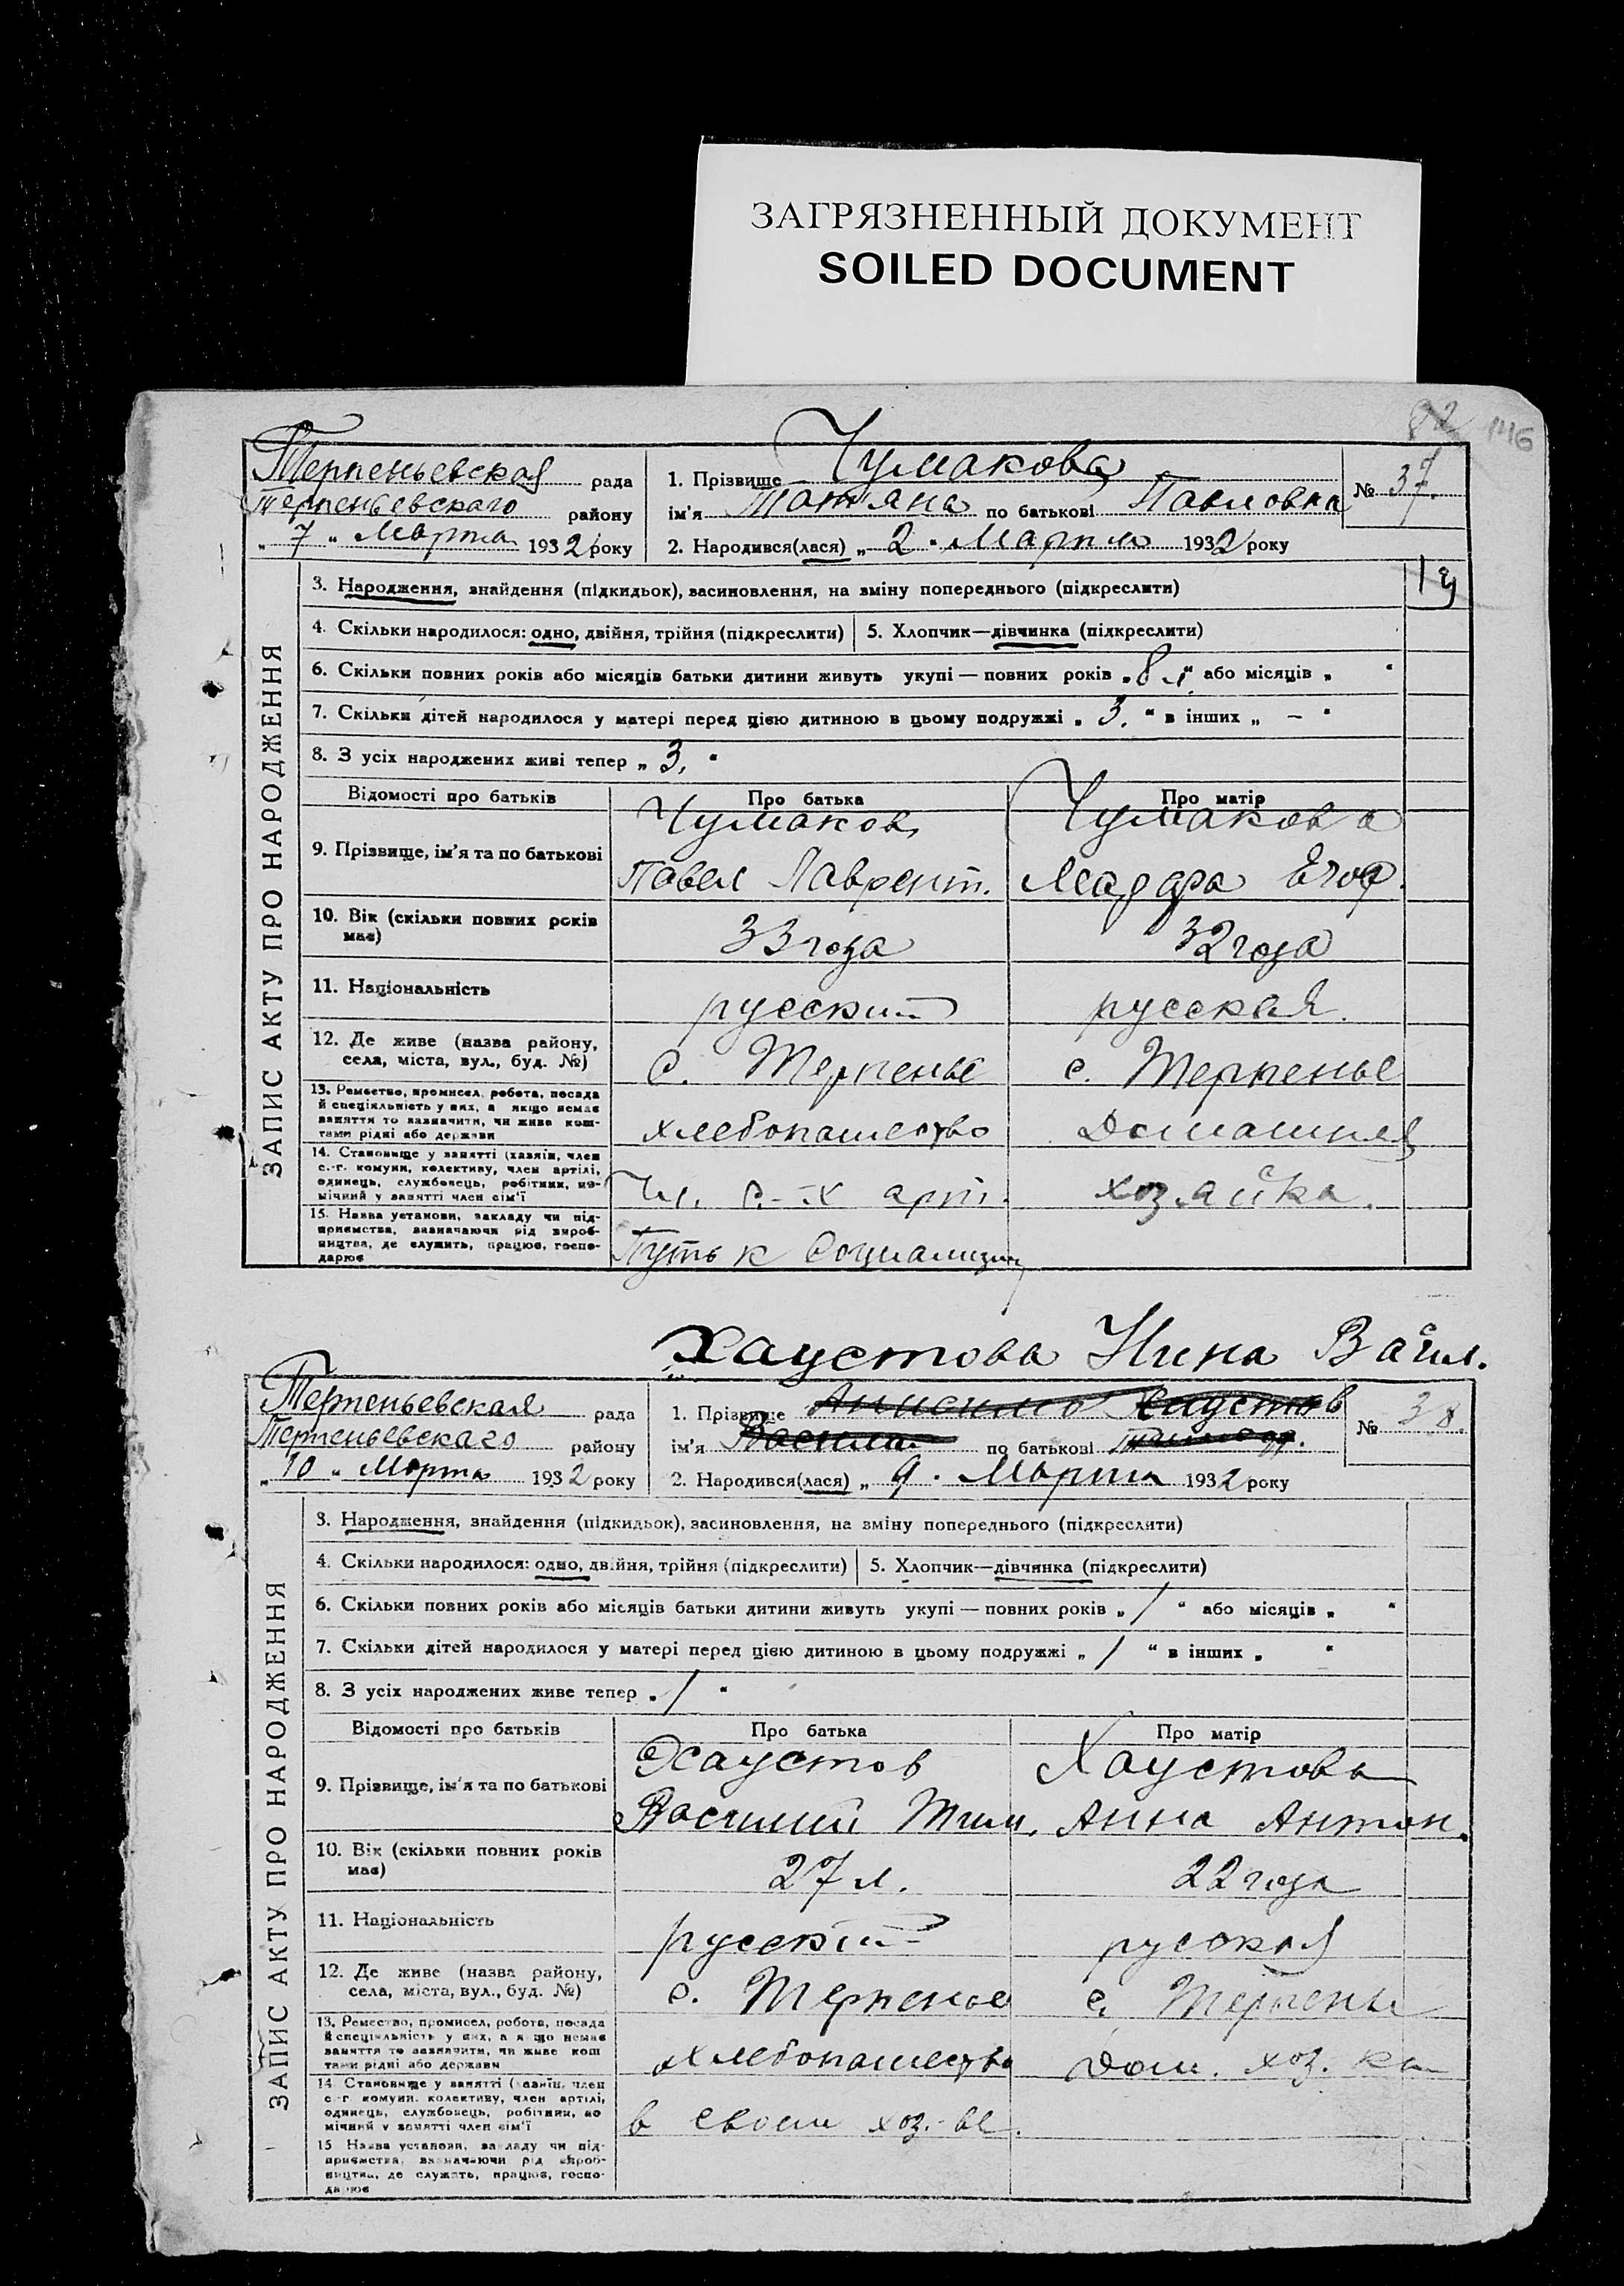 ЗАГРЯЗНЕННЫЙ ДОКУМЕНТ
SOILED DOCUMENT
146
Терпеньевская рада
Терпеньевскаго району
„ 7 " Марта 1932 року
1. Прізвище Чумакова
ім'я Татяна по батькові Павловна
№ 37.
2. Народився(лася) „ 2 " Марта 1932 року
ЗАПИС АКТУ ПРО НАРОДЖЕННЯ
3. Народження, знайдення (підкидьок), васиновлення, на зміну попереднього (підкреслити)
4. Скільки народилося: одно, двійня, трійня (підкреслити) 5. Хлопчик—дівчинка (підкреслити)
6. Скільки повних років або місяців батьки дитини живуть укупі — повних років „ 8 " або місяців „ "
7. Скільки дітей народилося у матері перед цією дитиною в цьому подружжі „ 3. " в інших „ – "
8. З усіх народжених живі тепер „ 3. "
Відомості про батьків Про батька Про матір
9. Прізвище, ім'я та по батькові
Чумаков Чумакова
Павел Лаврент. Егор.
10. Вік (скільки повних років має) 33 года 32 года
11. Національність русский русская.
12. Де живе (назва району, села, міста, вул., буд. №) с. Терпенье с. Терпенье
13. Ремество, промисел, робота, посада
й спеціяльність у них, а якщо немає
заняття то зазначити, чи живе кош-
тами рідні або держави
хлебопашество Домашняя
14. Становище у занятті (хазяїн, член
с.-г. комуни, колективу, член артілі,
одинець, службовець, робітник, по-
мічний у занятті член сім'ї
Чл. с.-х арт. хозяйка.
15. Назва установи, закладу чи під-
приємства, визначаючи рід вироб-
ництва, де служить, працює, госпо-
дарює
Путь к Социализму
Хаустова Нина Васил.
Терпеньевская рада
Терпеньевскаго району
„ 10 " Марта 1932 року
1. Прізвище Хаустов
ім'я по батькові
№ 38.
2. Народився(лася) „ 9 " Марта 1932 року
ЗАПИС АКТУ ПРО НАРОДЖЕННЯ
3. Народження, знайдення (підкидьок), засиновлення, на зміну попереднього (підкреслити)
4. Скільки народилося: одно, двійня, трійня (підкреслити) 5. Хлопчик—дівчинка (підкреслити)
6. Скільки повних років або місяців батьки дитини живуть укупі — повних років „ / " або місяців „ "
7. Скільки дітей народилося у матері перед цією дитиною в цьому подружжі „ / " в інших „ "
8. З усіх народжених живе тепер „ / "
Відомості про батьків Про батька Про матір
9. Прізвище, ім'я та по батькові
Хаустов Хаустова
Василий Тим. Анна Антон.
10. Вік (скільки повних років має) 27 л. 22 года
11. Національність русский русская
12. Де живе (назва району, села, міста, вул., буд. №) с. Терпенье с. Терпенье
13. Ремество, промисел, робота, посада
й спеціяльність у них, а якщо немає
заняття то зазначити, чи живе кош
тами рідні або держави
хлебопашество Дом. хоз. ка
14. Становище у занятті (хазяїн, член
с.-г. комуни, колективу, член артілі,
одинець, службовець, робітник, по
мічний у занятті член сім'ї
в своем хоз.-ве.
15 Назва установи, закладу чи під-
приємства, визначаючи рід вироб-
ництва, де служить, працює, госпо-
дарює